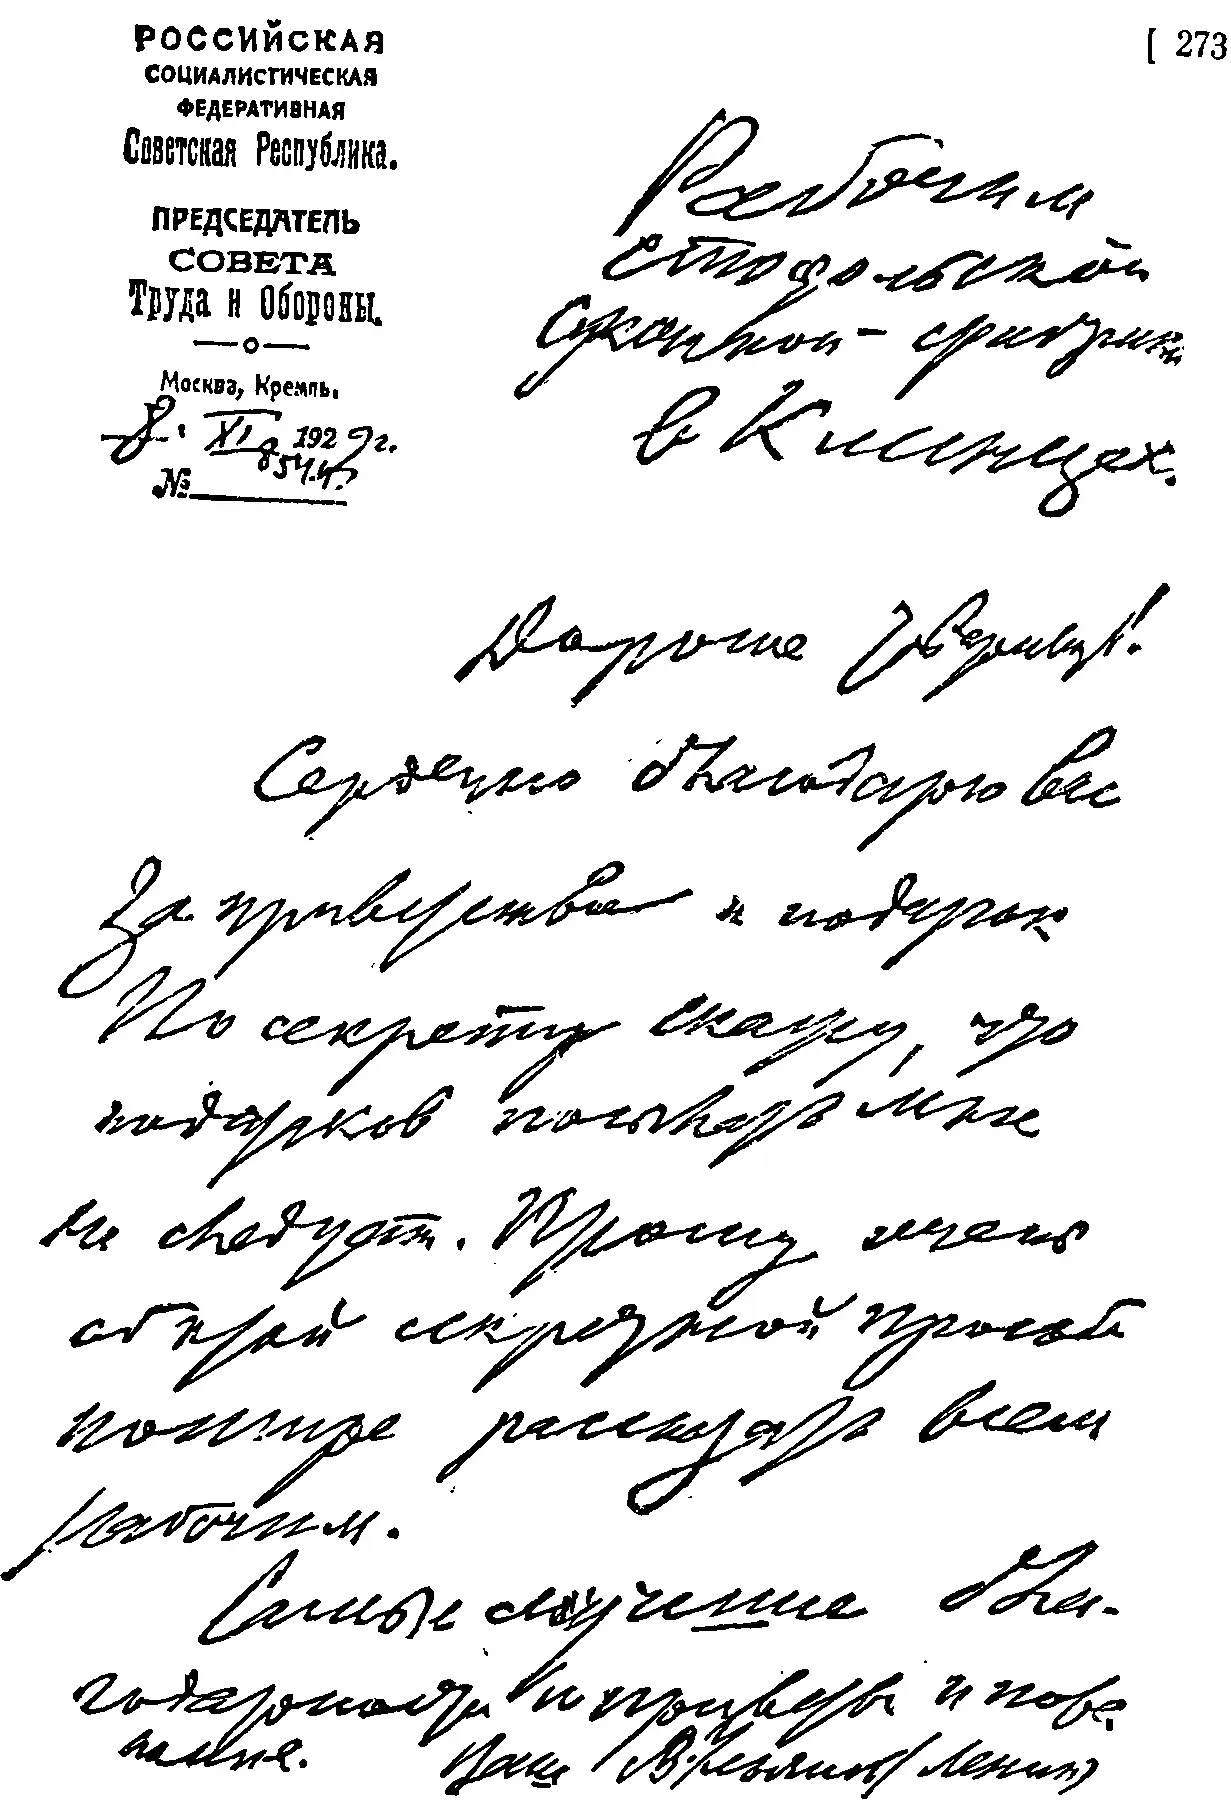 РОССИЙСКАЯ
СОЦИАЛИСТИЧЕСКАЯ
ФЕДЕРАТИВНАЯ
Советская Республика.
ПРЕДСЕДАТЕЛЬ
СОВЕТА
Труда и Обороны.
Москва, Кремль.
8. XI 1922 г.
№
[ 273
Рабочим
стодольской
суконной фабрики
в Клинцах.
Дорогие товарищи!
Сердечно благодарю Вас
за приветствие и подарок
По секрету скажу, что
подарков посылать мне
не следует. Прошу очень
об этой секретной просьбе
пошире рассказать всем
рабочим.
Самые лучшие бла-
годарности и приветы и поже
лания. Ваш В. Ульянов (Ленин)